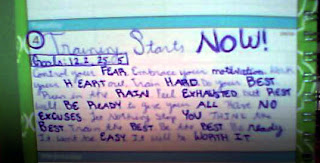 4 Training Starts NOW!
Goals: 12.2, 25.
Control your FEAR. Embrace your motivation. Work
your HEART out. Train HARD. Do your BEST
Run in the RAIN. Feel EXHAUSTED but REST
will BE READY to give your ALL. Have NO
EXCUSES. Let Nothing Stop YOU. THINK the
BEST. Train the BEST. Be the BEST. Be ready
It wont be EASY. It will be WORTH IT